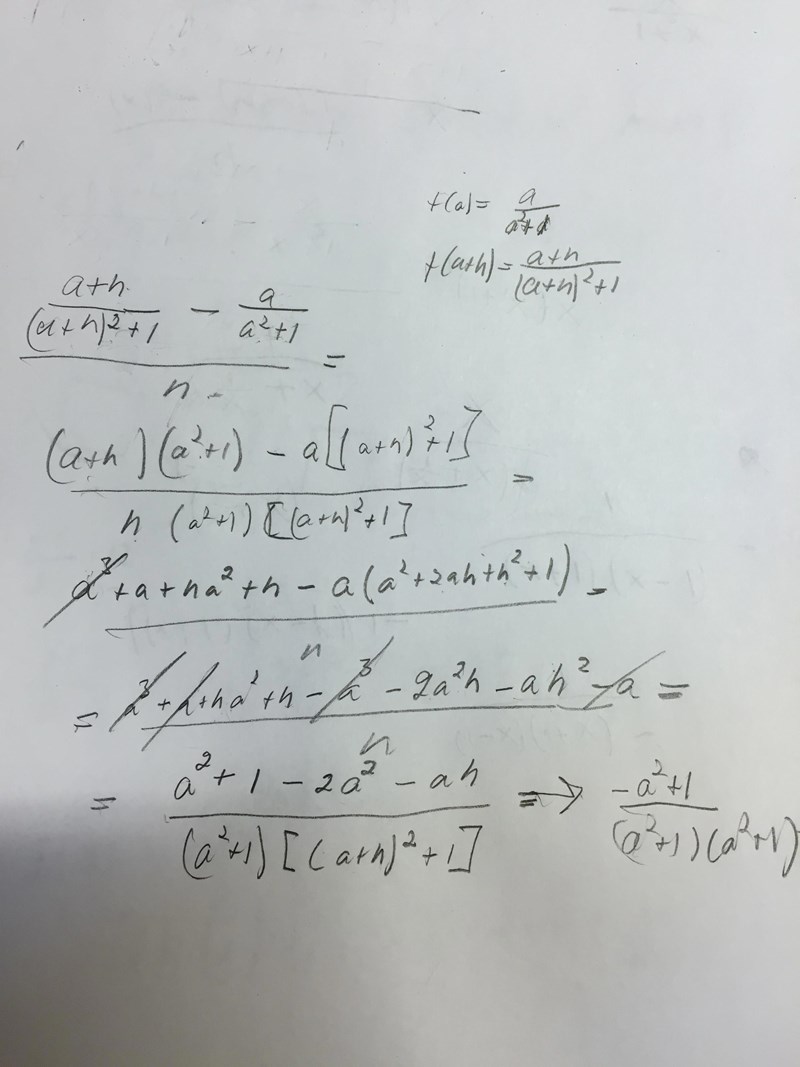 f(a) = a/(a²+1)
f(a+h) = (a+h)/((a+h)²+1)
((a+h)/((a+h)²+1) − a/(a²+1))/h =
((a+h)(a²+1) − a[(a+h)²+1])/(h (a²+1)[(a+h)²+1]) =
(a³ + a + ha² + h − a(a²+2ah+h²+1))/h =
= (a³ + a + ha² + h − a³ − 2a²h − ah² − a)/h =
= (a² + 1 − 2a² − ah)/((a²+1)[(a+h)²+1]) ⇒ (−a²+1)/((a²+1)(a²+1))